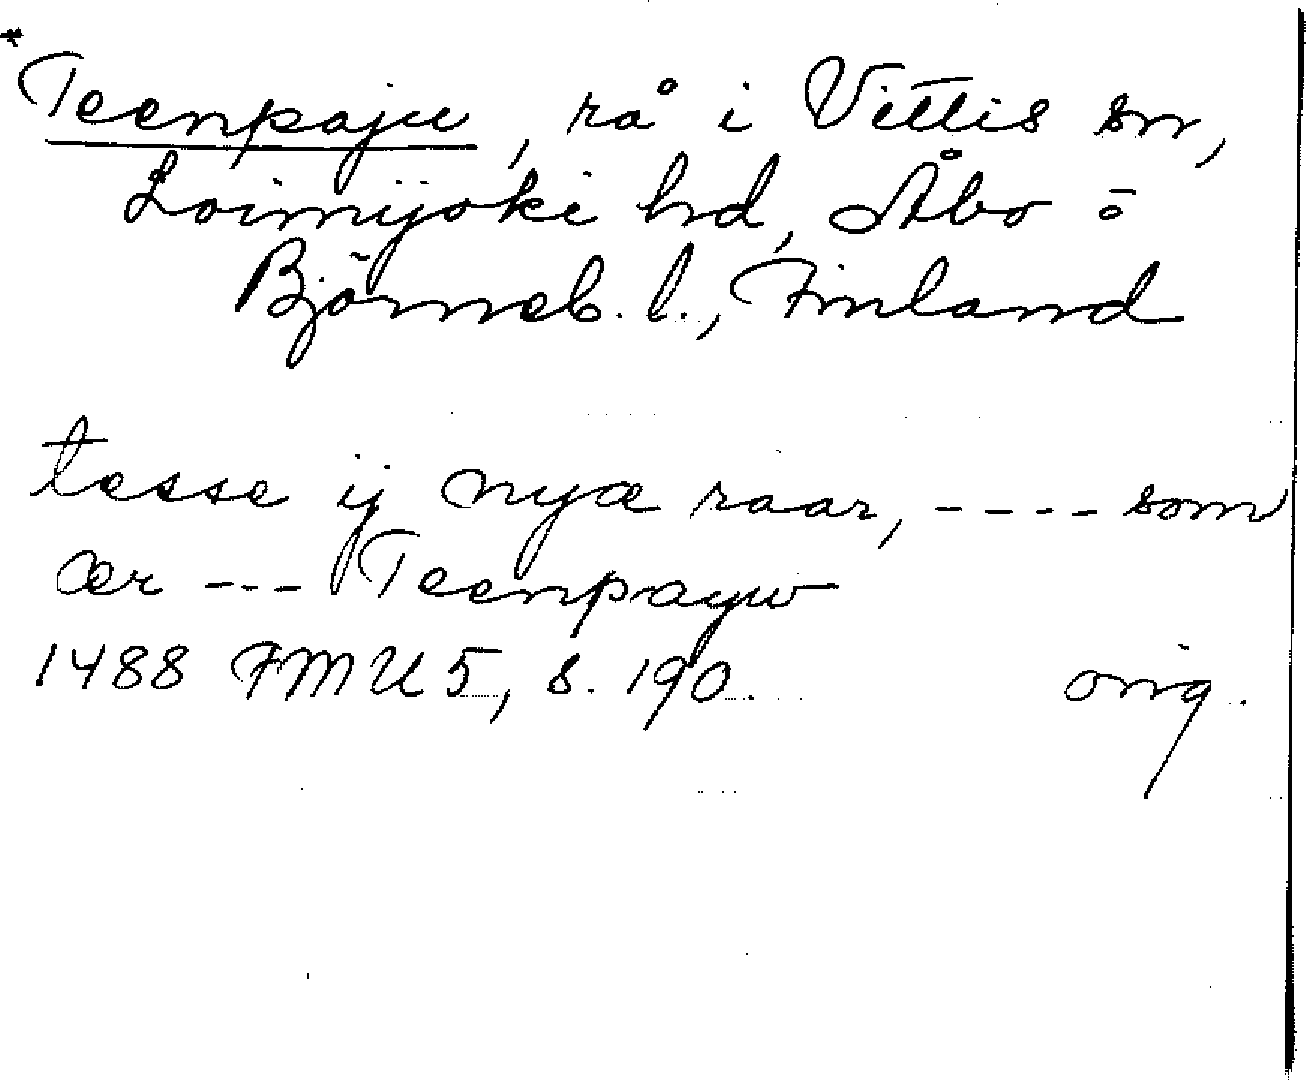 *
Teenpaju, rå i Vittis sn,
Loimijoki hd, Åbo o
Björneb. l., Finland
tesse ij nyæ raar, ---- som
ær --- Teenpayw
1488 FMU 5, s. 190. orig.